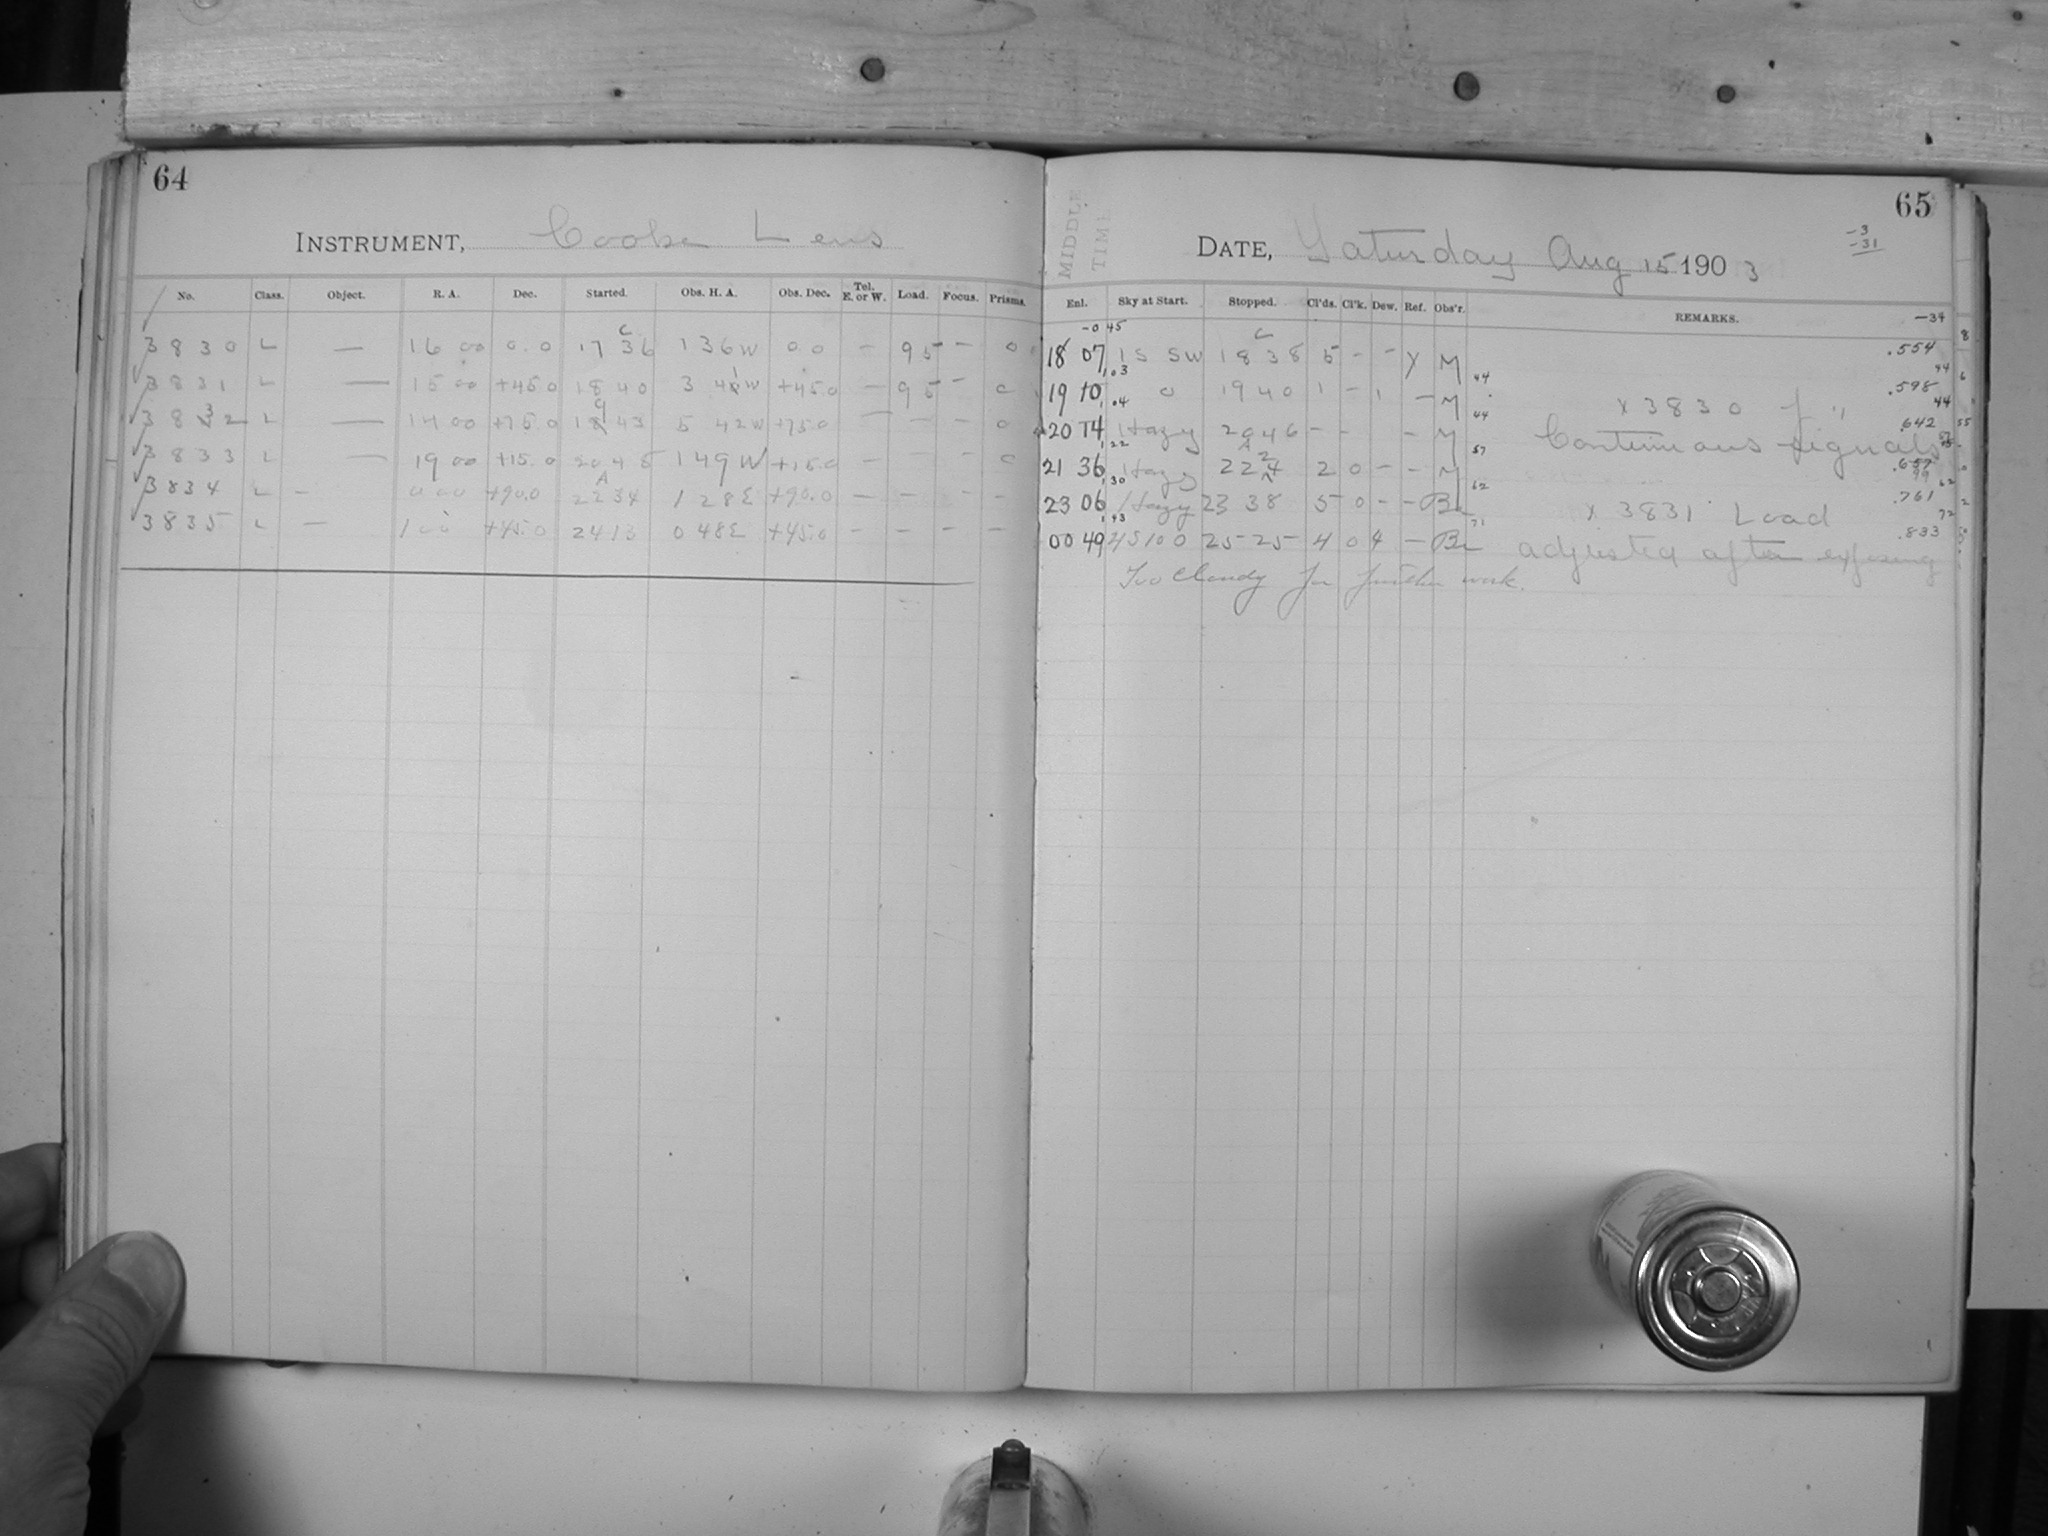 64
INSTRUMENT, Cooke Lens
No. Class. Object. R. A. Dec. Started. Obs. H. A. Obs. Dec. Tel. E. or W. Load. Focus. Prisms.
3830 L — 16 00 0.0 17 36 1 36 W 0.0 — 95 — 0
3831 L — 15 00 +45.0 18 40 3 41 W +45.0 — 95 —
3832 L — 14 00 +75.0 19 43 5 42 W +75.0 — — —
3833 L — 19 00 +15.0 20 48 1 49 W +15.0 — — —
3834 L — 0 00 +90.0 22 34 1 28 E +90.0 — — — —
3835 L — 1 00 +45.0 24 13 0 48 E +45.0 — — — —
65
MIDDLE
TIME
DATE, Saturday Aug 15 1903
-3
-31
Enl. Sky at Start. Stopped. Cl'ds. Cl'k. Dew. Ref. Obs'r. REMARKS. -34
-0 45
18 07 1 S SW 18 38 5 — — Y M .554
19 10 0 19 40 1 — 1 — M .598
x 3830 f "
20 14 Hazy 20 46 — — — M .642
Continuous signals
21 36 Hazy 22 2 0 — — M
23 06 Hazy 23 38 5 0 — — Br .761
x 3831 Load
00 49 25 25 4 0 4 — Br .833
adjusted after exposing
Too cloudy for further work.